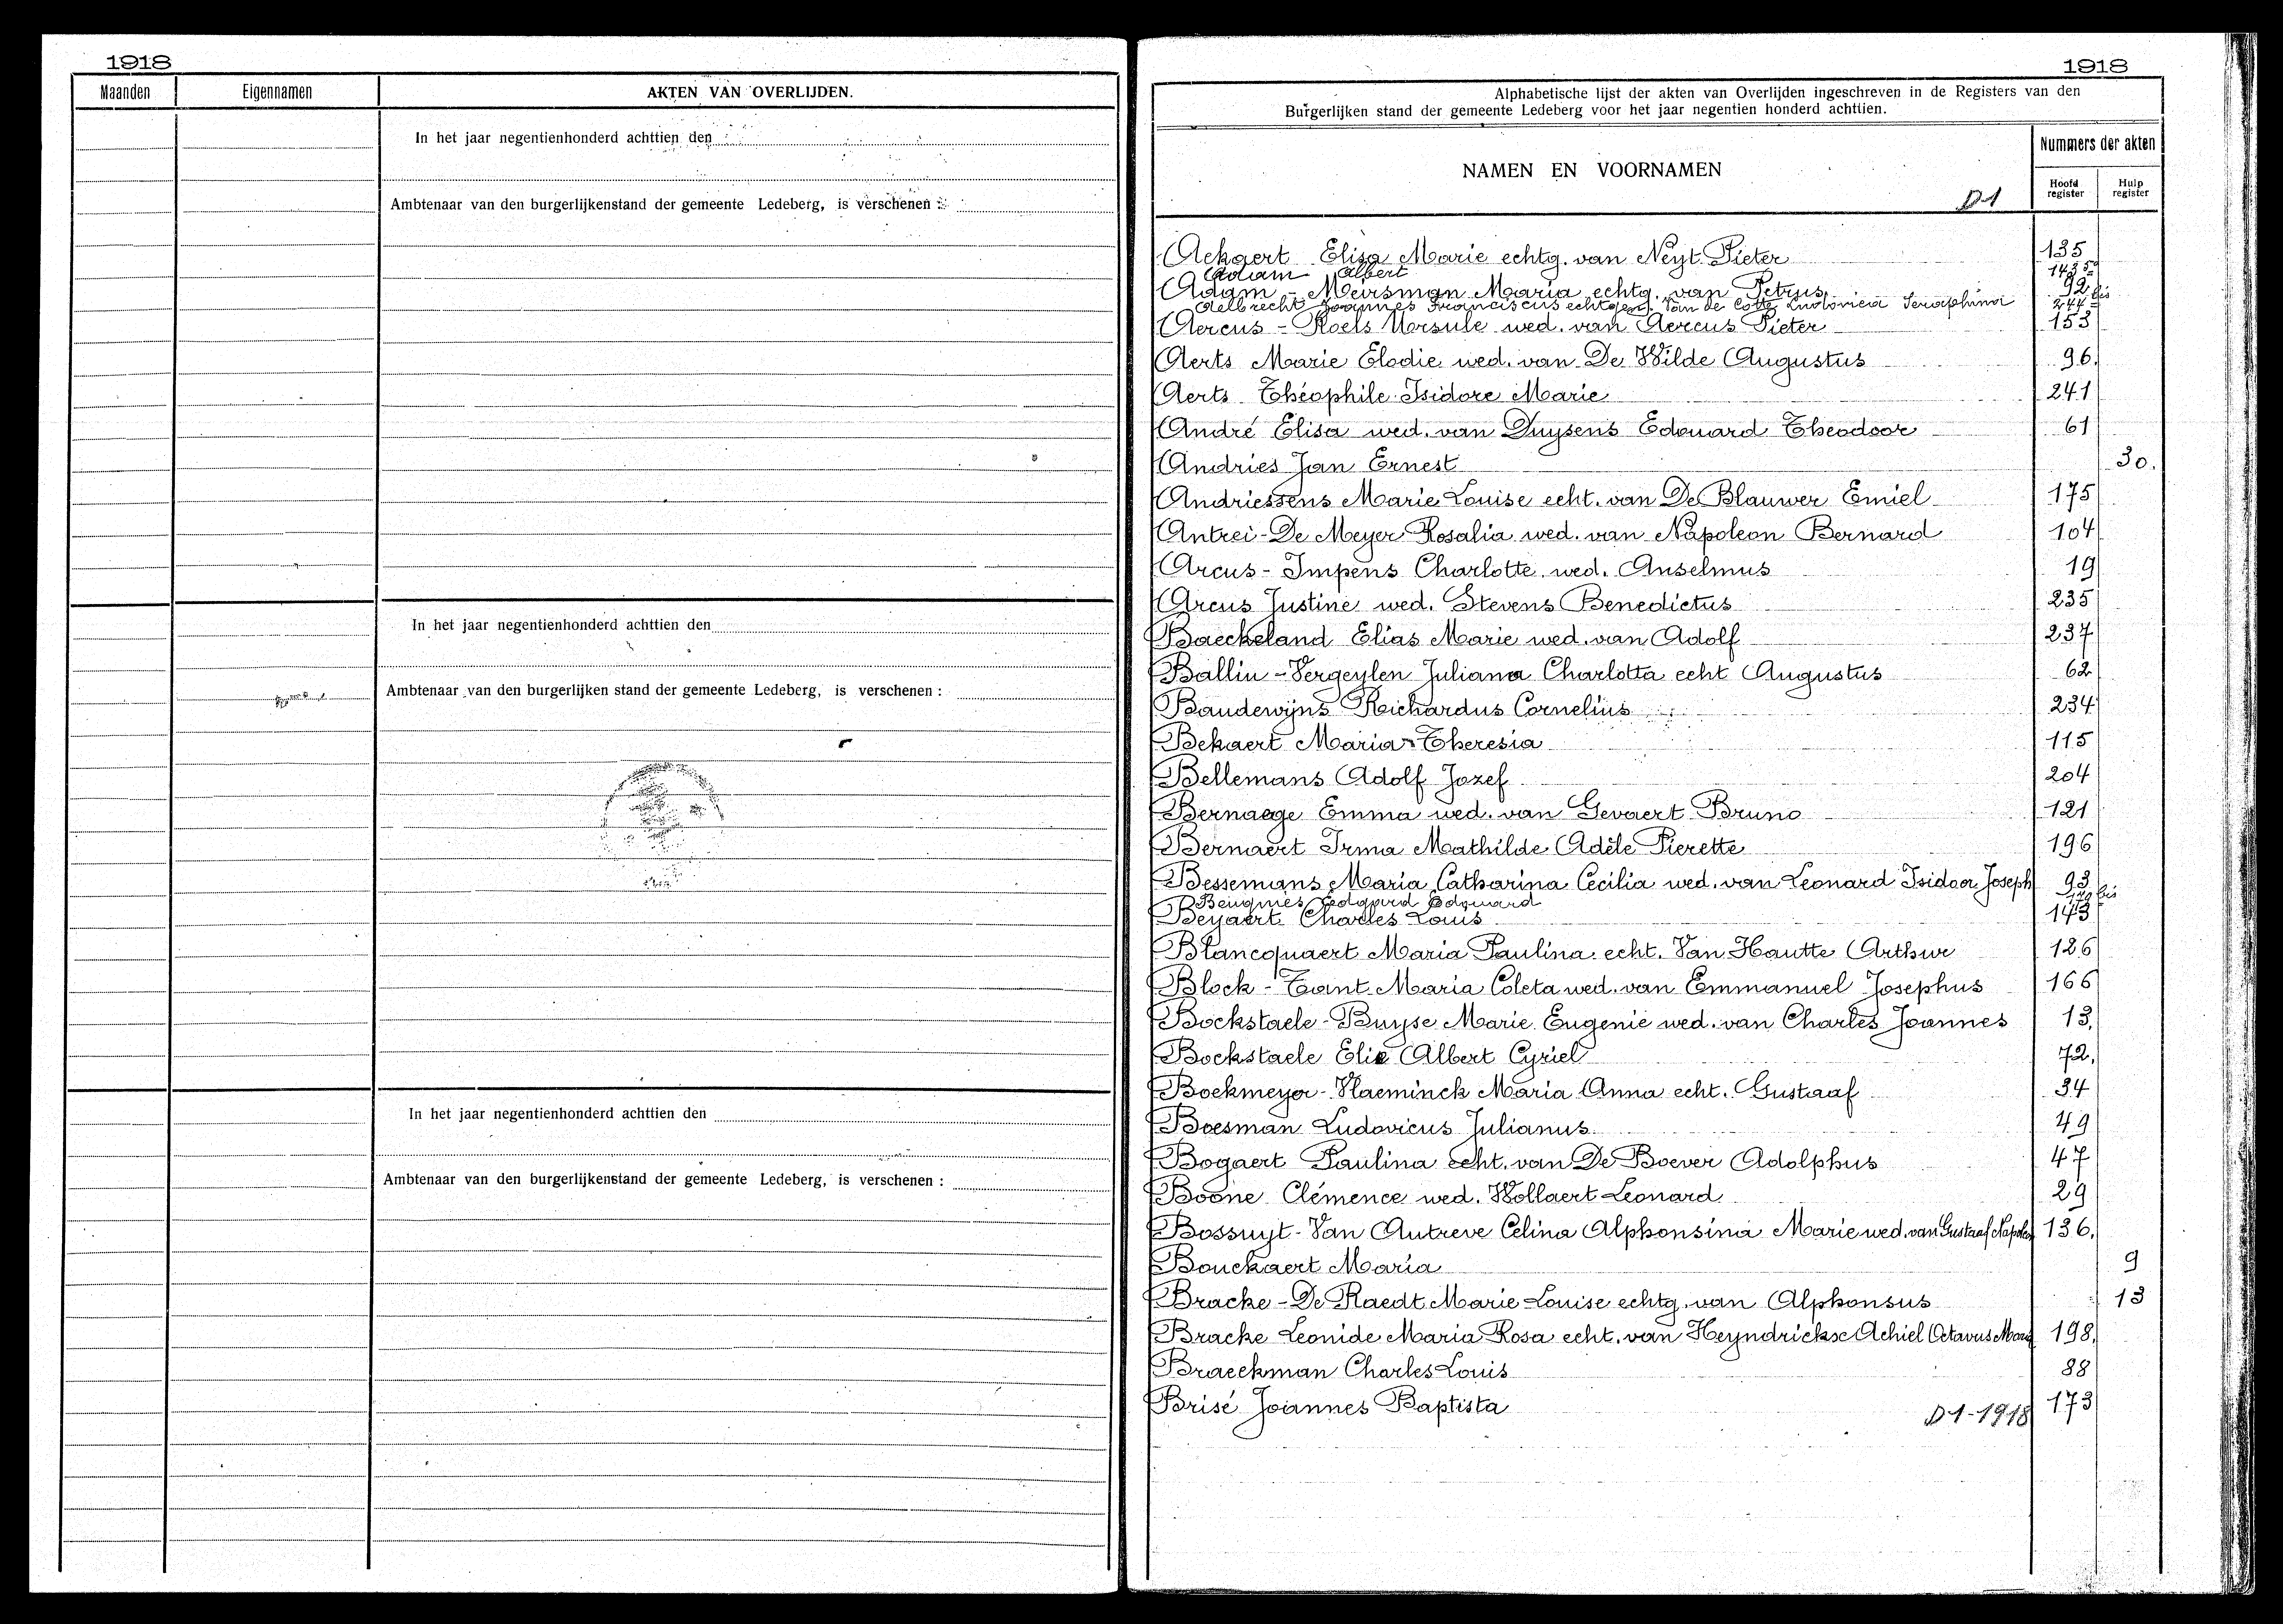 1918
Maanden Eigennamen AKTEN VAN OVERLIJDEN.
In het jaar negentienhonderd achttien den
Ambtenaar van den burgerlijkenstand der gemeente Ledeberg, is verschenen :
In het jaar negentienhonderd achttien den
Ambtenaar van den burgerlijken stand der gemeente Ledeberg, is verschenen :
In het jaar negentienhonderd achttien den
Ambtenaar van den burgerlijkenstand der gemeente Ledeberg, is verschenen :
1918
Alphabetische lijst der akten van Overlijden ingeschreven in de Registers van den
Burgerlijken stand der gemeente Ledeberg voor het jaar negentien honderd achttien.
NAMEN EN VOORNAMEN
Nummers der akten
Hoofd register Hulp register
D1
Ackaert Elisa Marie echtg. van Neyt Pieter 135
Adam Albert 143
Adam - Meirsman Maria echtg. van Petrus 92
Aelbrecht Joannes Franciscus echtgen. Van de Cotte Ludovica Seraphina 244 bis
Aercus - Roels Ursule wed. van Aercus Pieter 153
Aerts Marie Elodie wed. van De Wilde Augustus 96.
Aerts Théophile Isidore Marie 241
André Elisa wed. van Duysens Edouard Theodoor 61
Andries Jan Ernest 30.
Andriessens Marie Louise echt. van De Blauwer Emiel 175
Antrei - De Meyer Rosalia wed. van Napoleon Bernard 104
Arcus - Impens Charlotte wed. Anselmus 19
Arcus Justine wed. Stevens Benedictus 235
Baeckeland Elias Marie wed. van Adolf 237
Ballin - Vergeylen Juliana Charlotta echt Augustus 62
Baudewijns Richardus Cornelius 234
Bekaert Maria Theresia 115
Bellemans Adolf Jozef 204
Bernaege Emma wed. van Gevaert Bruno 121
Bernaert Irma Mathilde Adèle Pierette 196
Bessemans Maria Catharina Cecilia wed. van Leonard Isidoor Joseph 93
Edgard Edouard bis
Beyaert Charles Louis 143
Blancquaert Maria Paulina echt. Van Hautte Arthur 126
Block - Tant Maria Coleta wed. van Emmanuel Josephus 166
Bockstaele - Buyse Marie Eugenie wed. van Charles Joannes 13.
Bockstaele Elie Albert Cyriel 72.
Boekmeyer - Vlaeminck Maria Anna echt. Gustaaf 34
Boesman Ludovicus Julianus 49
Bogaert Paulina echt. van De Boever Adolphus 47
Boone Clémence wed. Hollaert Leonard 29
Bossuyt - Van Autreve Celina Alphonsina Marie wed. van Gustaaf 136.
Bouckaert Maria 9
Bracke - De Raedt Marie Louise echtg. van Alphonsus 13
Bracke Leonide Maria Rosa echt. van Heyndrickx Achiel Octavus 198.
Braeckman Charles Louis 88
Brisé Joannes Baptista 173
D1-1918